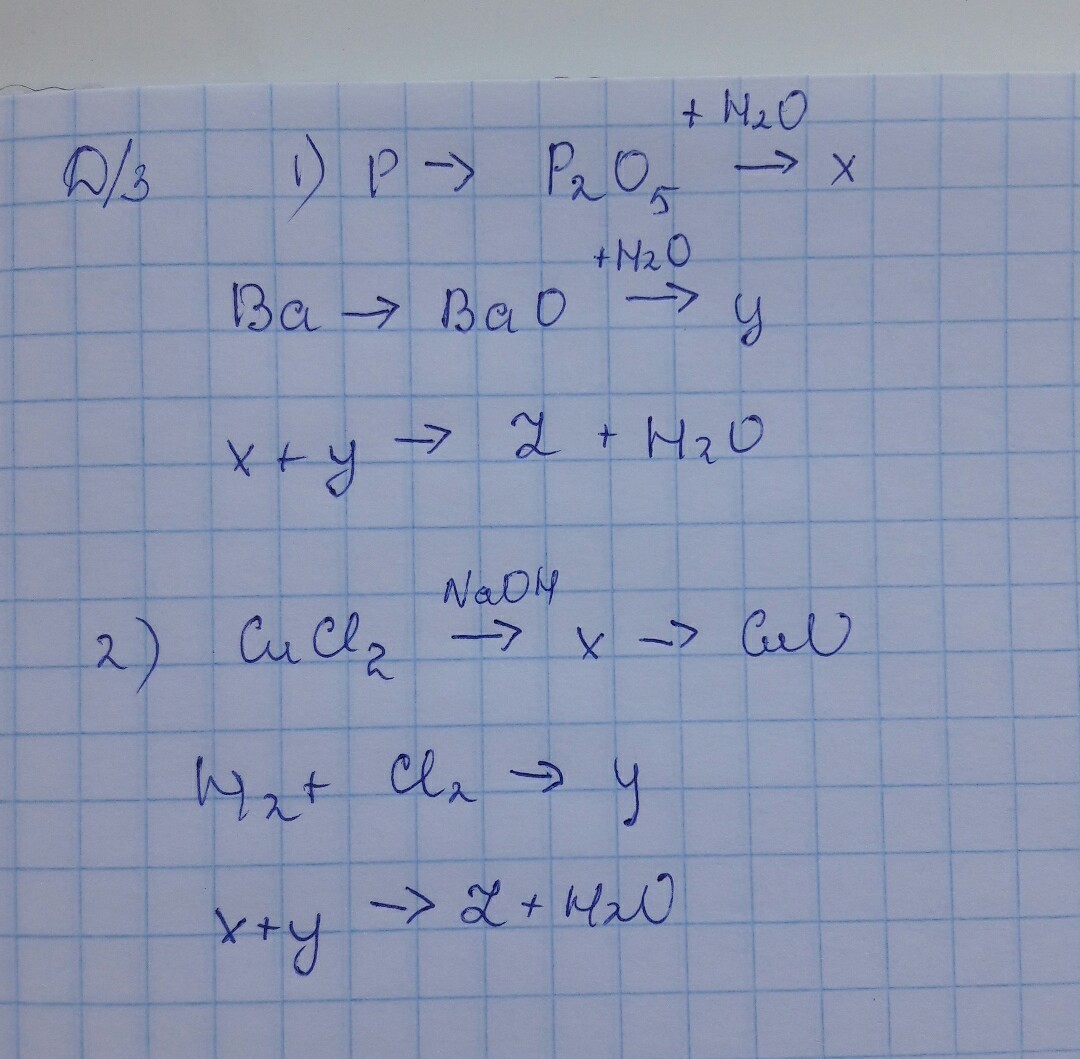 Д/з 1) P → P₂O₅ +H₂O → x
Ba → BaO +H₂O → y
x + y → Z + H₂O
2) CuCl₂ NaOH → x → CuO
H₂ + Cl₂ → y
x+y → Z + H₂O